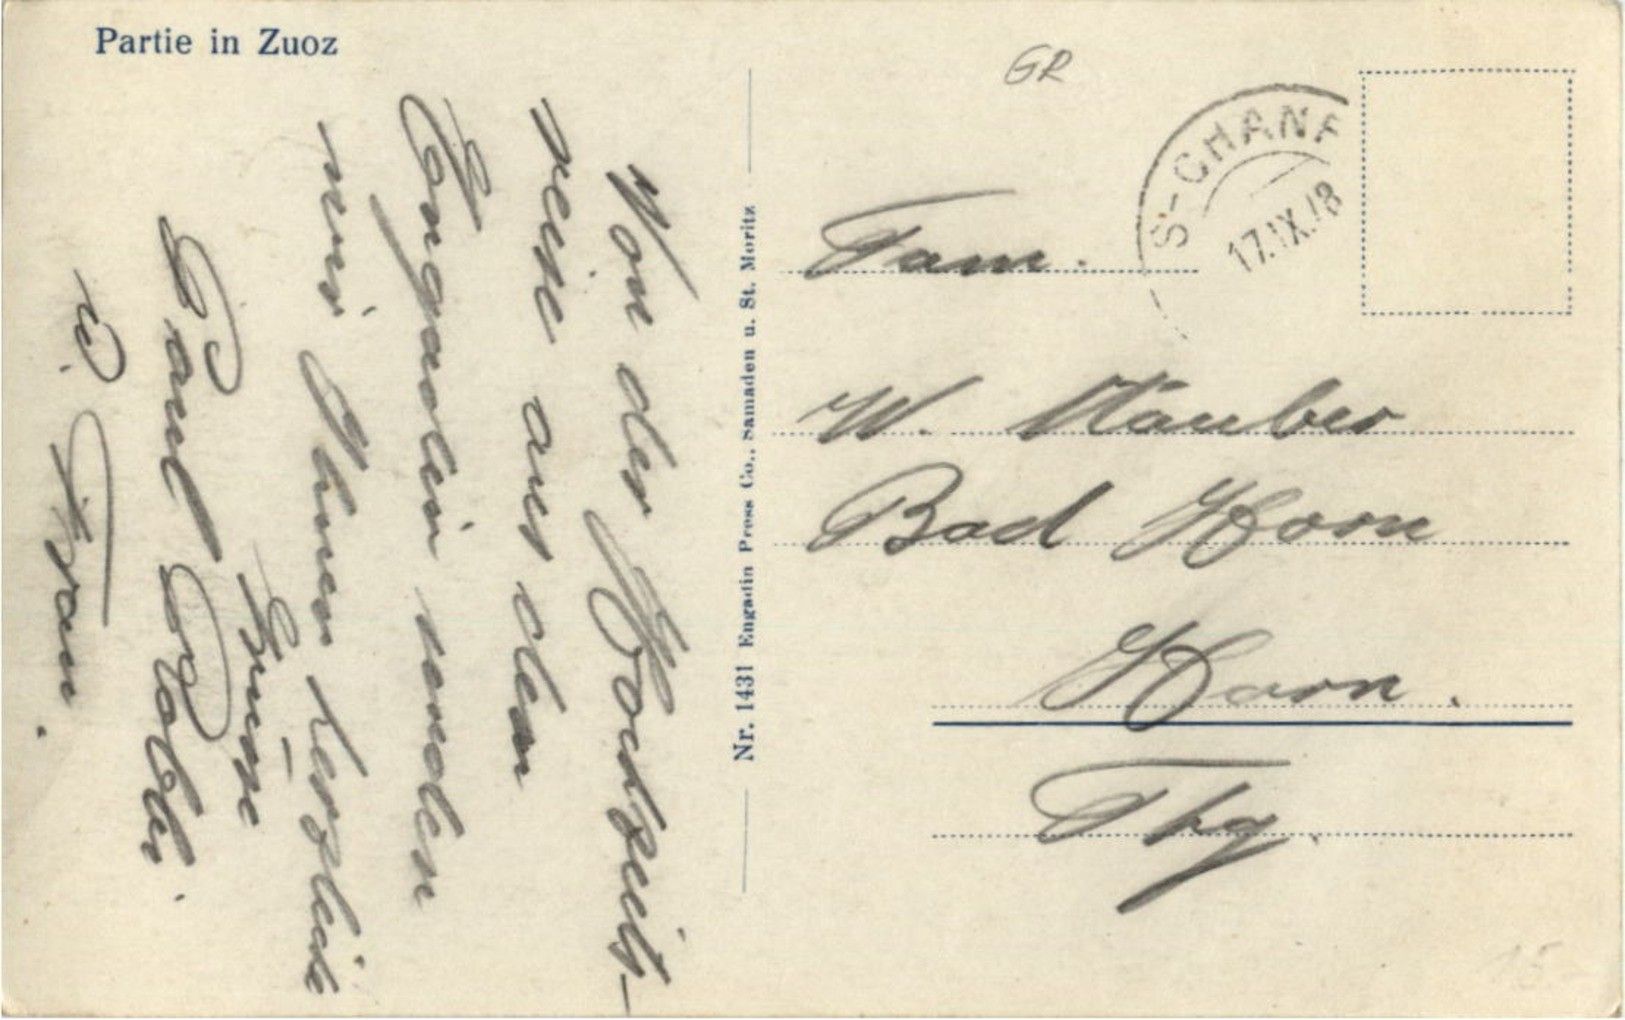 Partie in Zuoz
GR
S-CHANF
17.IX.18
Von der Hochzeits-
reise aus dem
Engadin senden
wir Ihnen herzliche
Grüsse
Paul
u. Frau.
Nr. 1431 Engadin Press Co., Samaden u. St. Moritz
Fam.
W. Stäuber
Bad Horn
Horn.
Thg.
15.